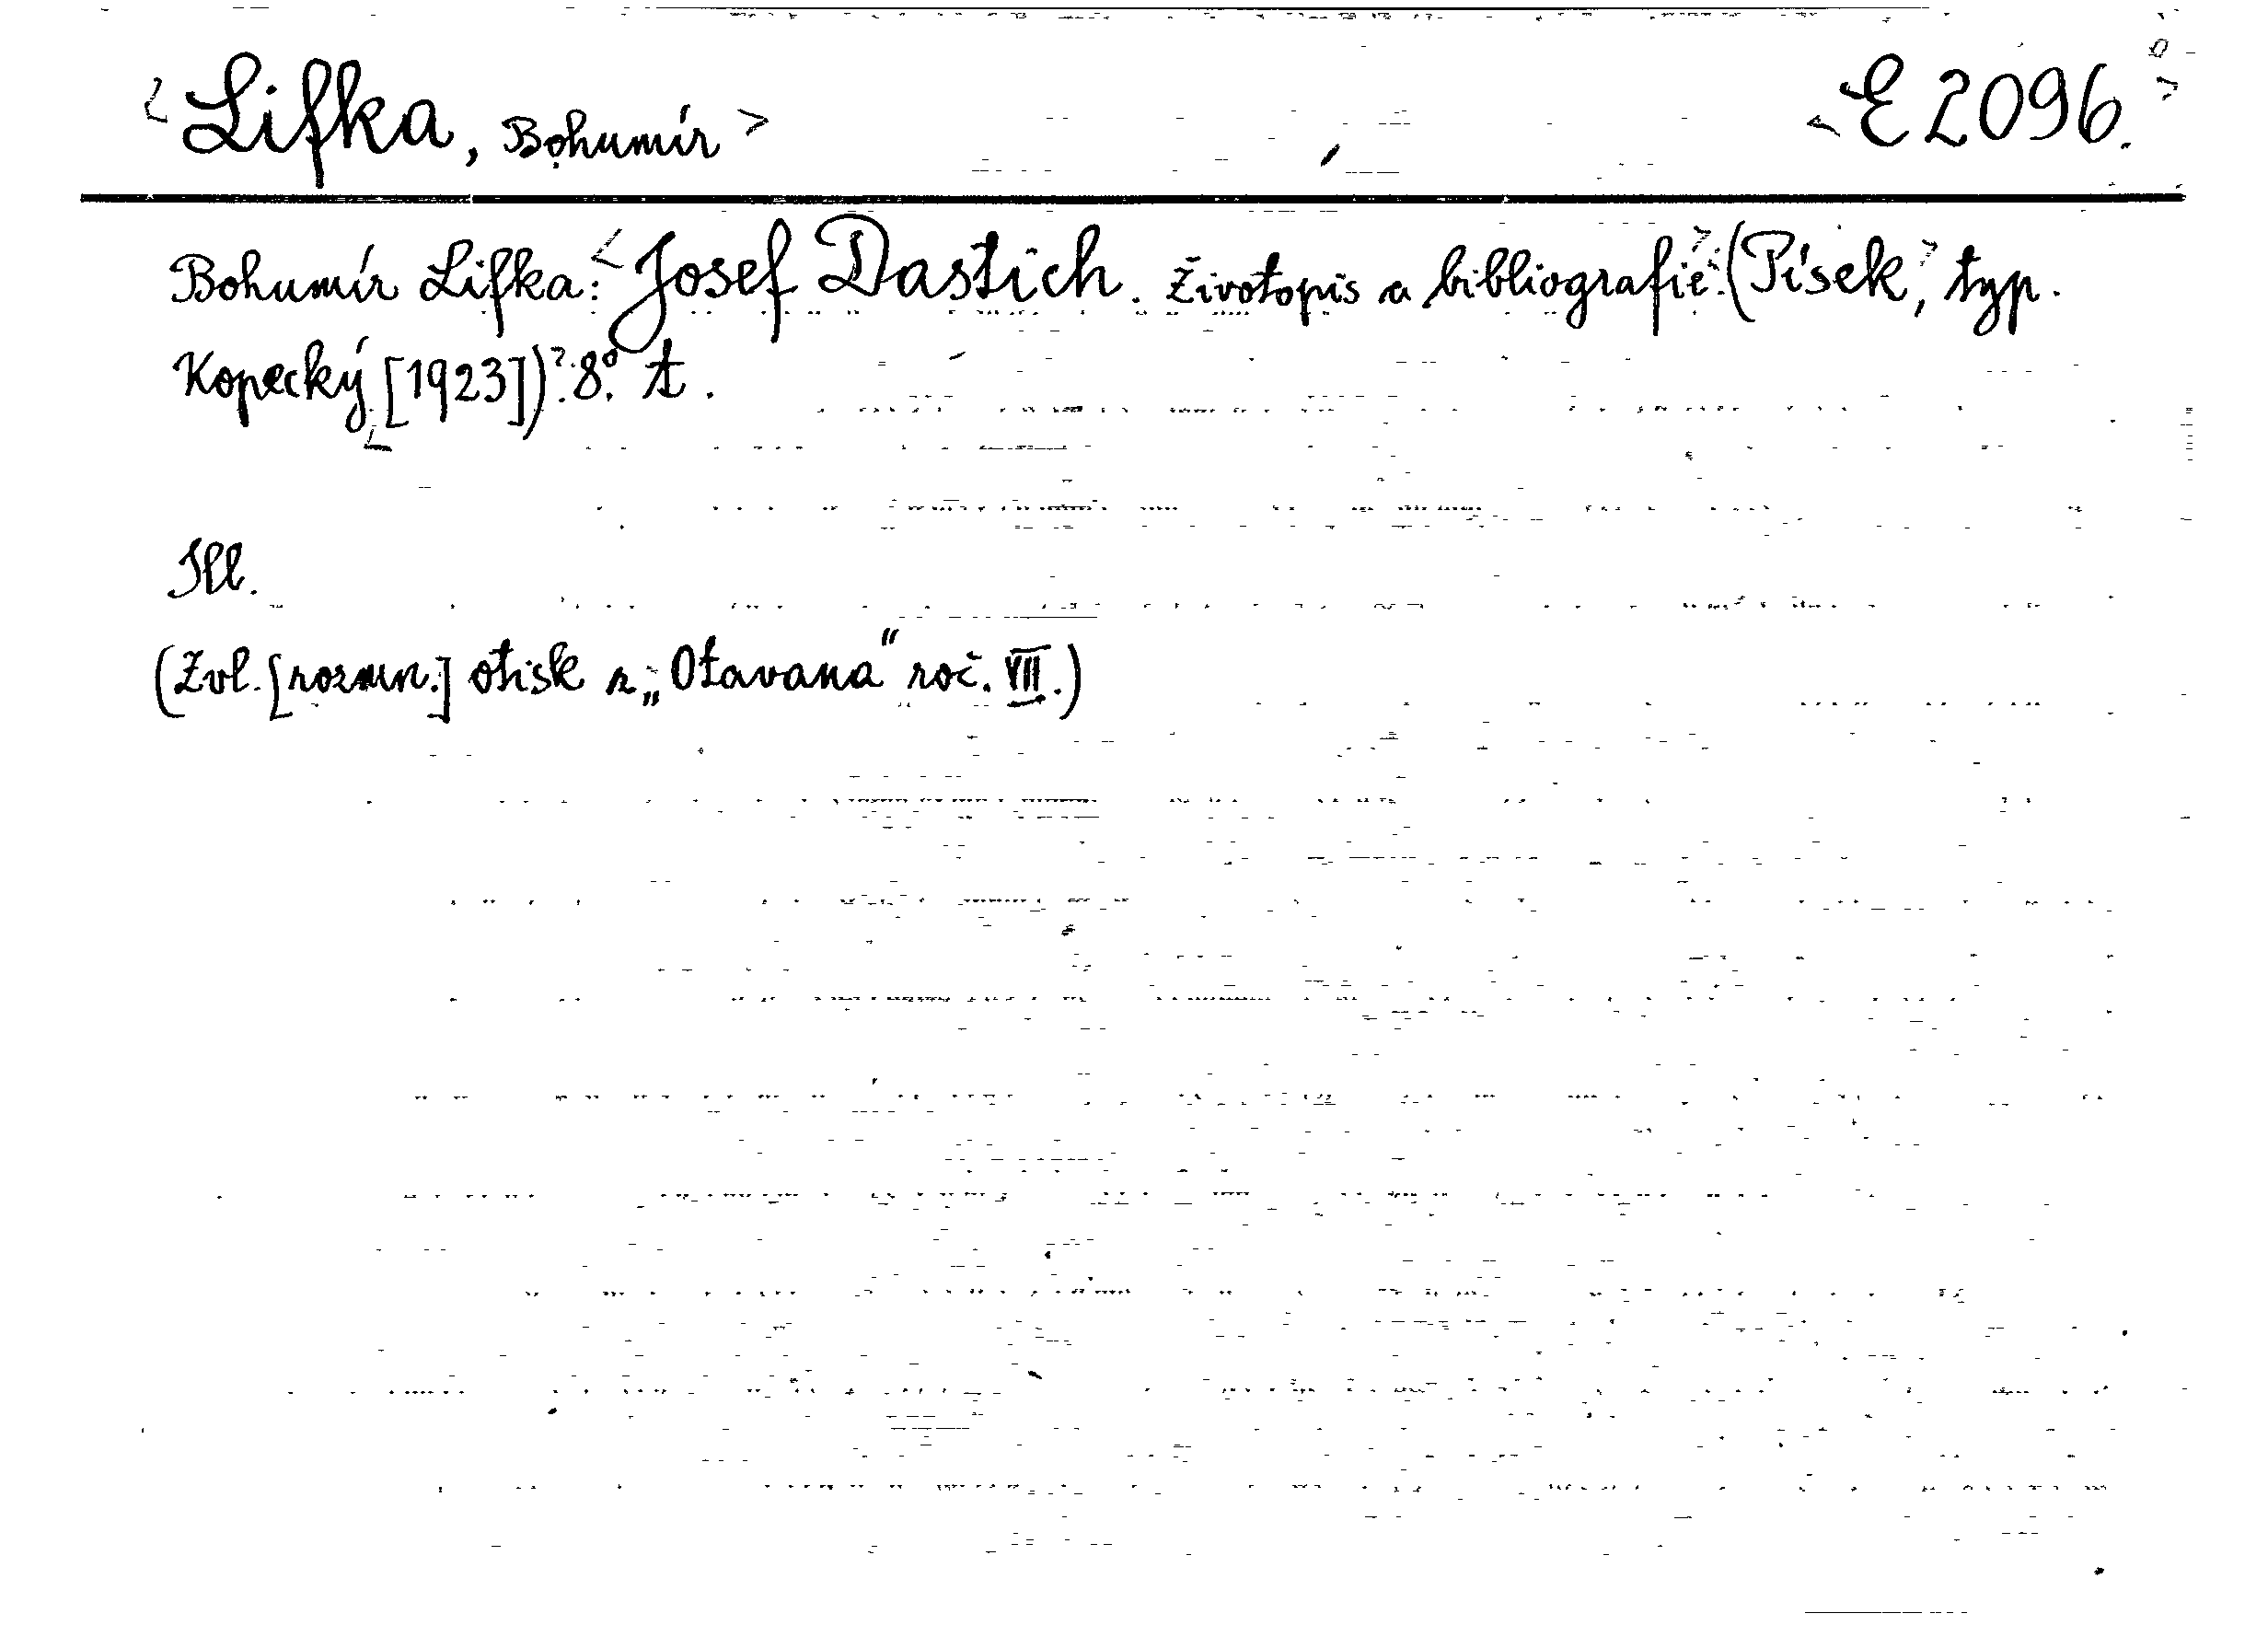 <Lifka, Bohumír> <E 2096.>
Bohumír Lifka: <Josef Dastich. Životopis a bibliografie>. (Písek,> typ.
Kopecký <[1923])>. 8°. A.
Ill.
(Zvl. [rozmn.] otisk z „Otavana“ roč. VII.)